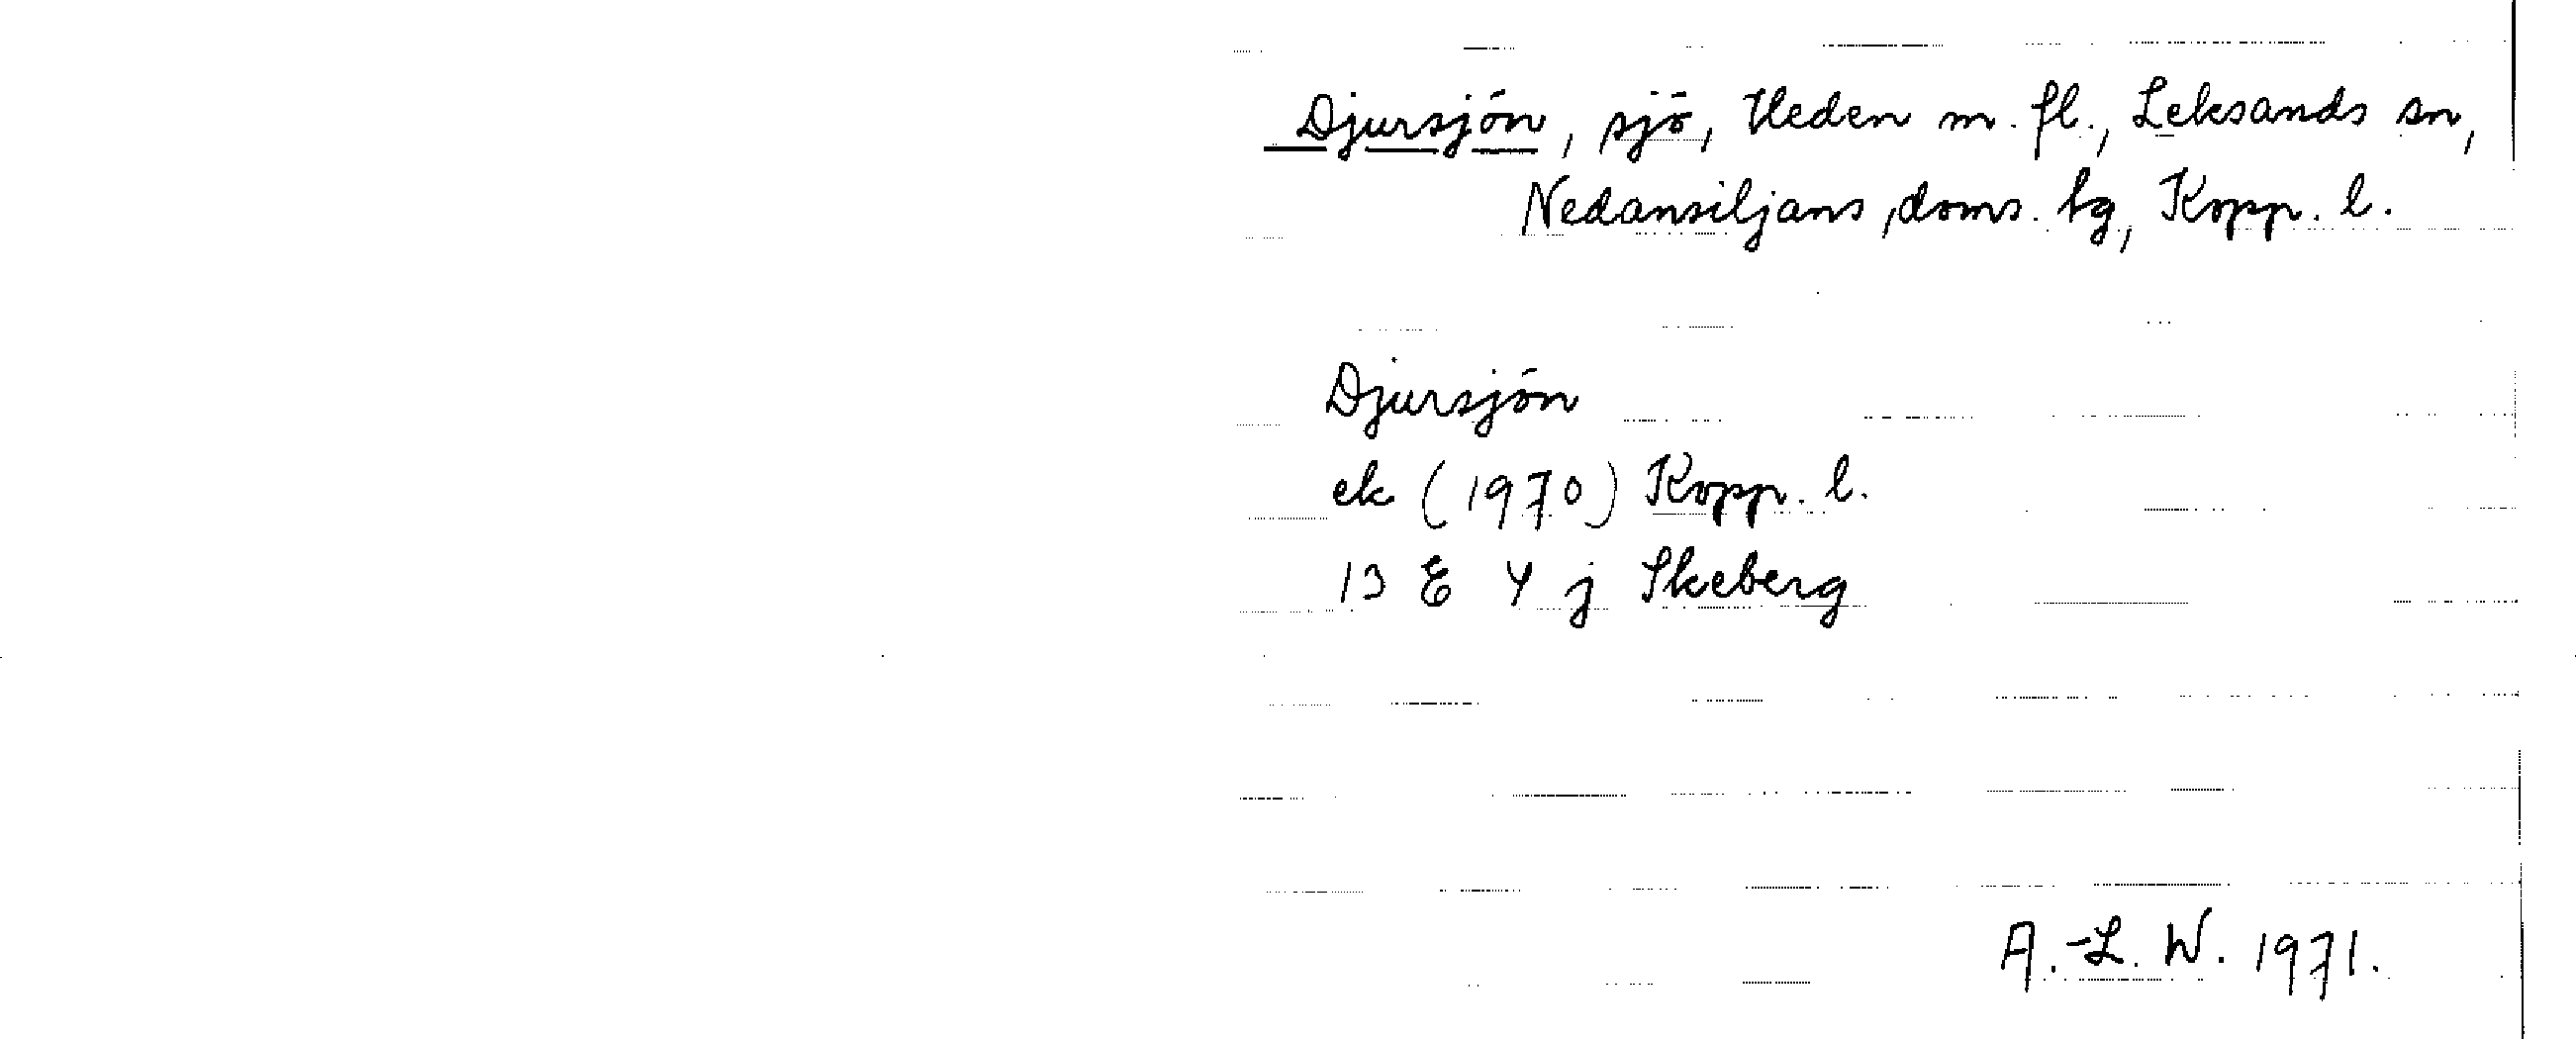 Djursjön, sjö, Heden m. fl., Leksands sn,
Nedansiljans doms. tg, Kopp. l.
Djursjön
ek (1970) Kopp. l.
13 E 4 j Skeberg
A.-L. W. 1971.